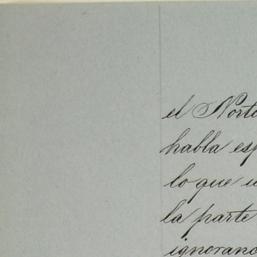 el Norte
habla esp
lo que u
la parte
ignoranc